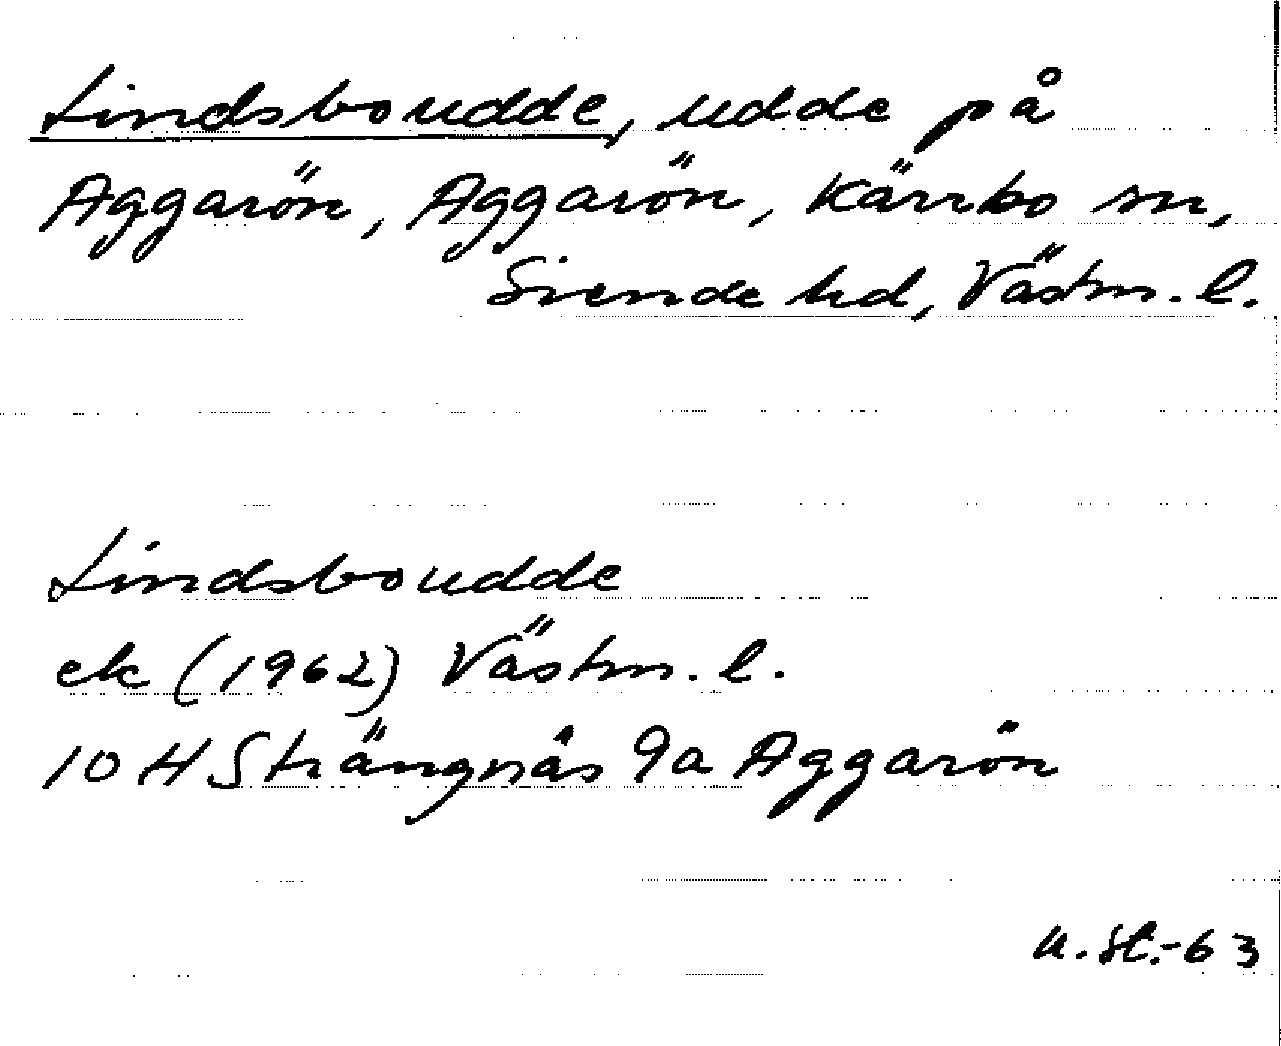 Lindsboudde, udde på
Aggarön, Aggarön, Kärrbo sn,
Siende hd, Västm. l.
Lindsboudde
ek (1962) Västm. l.
10 H Strängnäs 9a Aggarön
U. St. -63